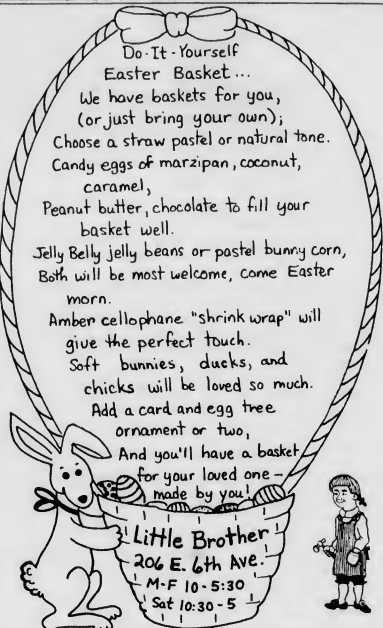 Do-It-Yourself
Easter Basket...
We have baskets for you,
(or just bring your own);
Choose a straw pastel or natural tone.
Candy eggs of marzipan, coconut,
caramel,
Peanut butter, chocolate to fill your
basket well.
Jelly Belly jelly beans or pastel bunny corn,
Both will be most welcome, come Easter
morn.
Amber cellophane "shrink wrap" will
give the perfect touch.
Soft bunnies, ducks, and
chicks will be loved so much.
Add a card and egg tree
ornament or two,
And you'll have a basket
for your loved one-
made by you!
Little Brother
206 E. 6th Ave.
M-F 10-5:30
Sat 10:30-5